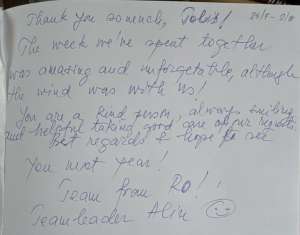 Thank you so much, Tolis!
The week we've spent together
was amazing and unforgetable, although
the wind was with us!
You are a kind person, always smiling
and helpful taking good care of our
best regards & hope to see
You next year!
Team from RO!
Teamleader Alin